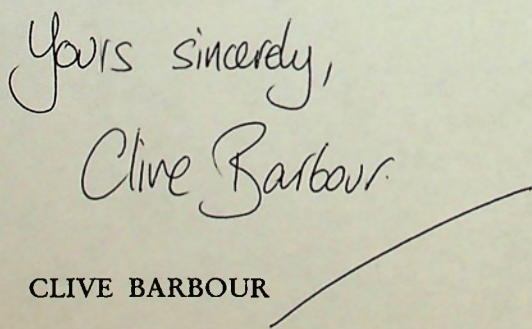 Yours sincerely,
Clive Barbour.
CLIVE BARBOUR